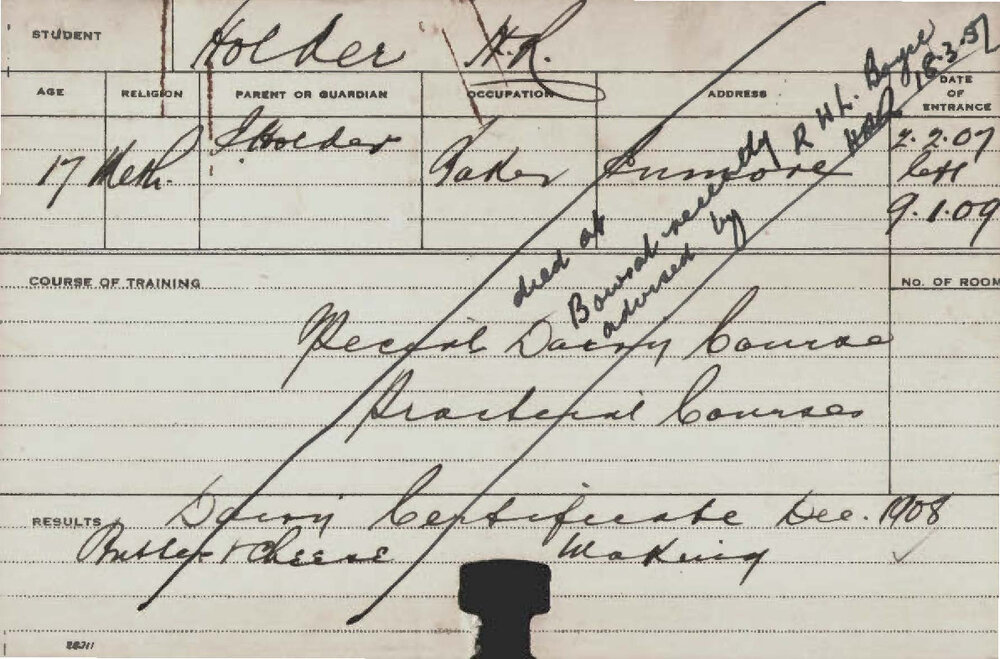 STUDENT Holder H.R.
AGE RELIGION PARENT OR GUARDIAN OCCUPATION ADDRESS DATE OF ENTRANCE
17 Meth. J Holder Baker Inmore 2.2.07
left
9.1.09
died at
Bowral recently R H L. Boyce 18.3.57
advised by
COURSE OF TRAINING
No. OF ROOM
Special Dairy Course
Practical Courses
RESULTS Dairy Certificate Dec. 1908
Butter & Cheese Making